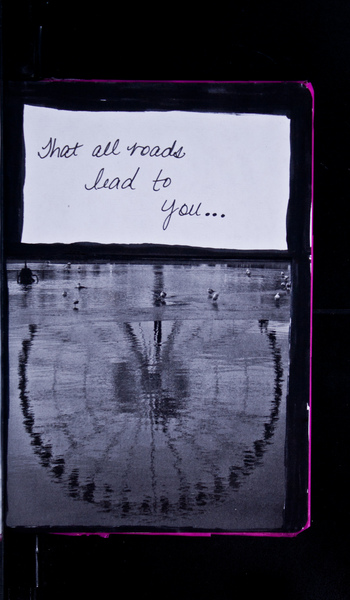 That all roads
lead to
you...